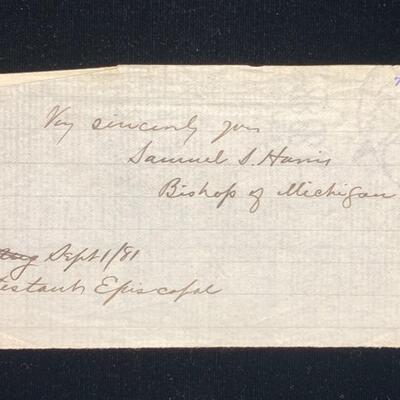 Very sincerely yours
Samuel S. Harris
Bishop of Michigan
Sept 1/81
Episcopal